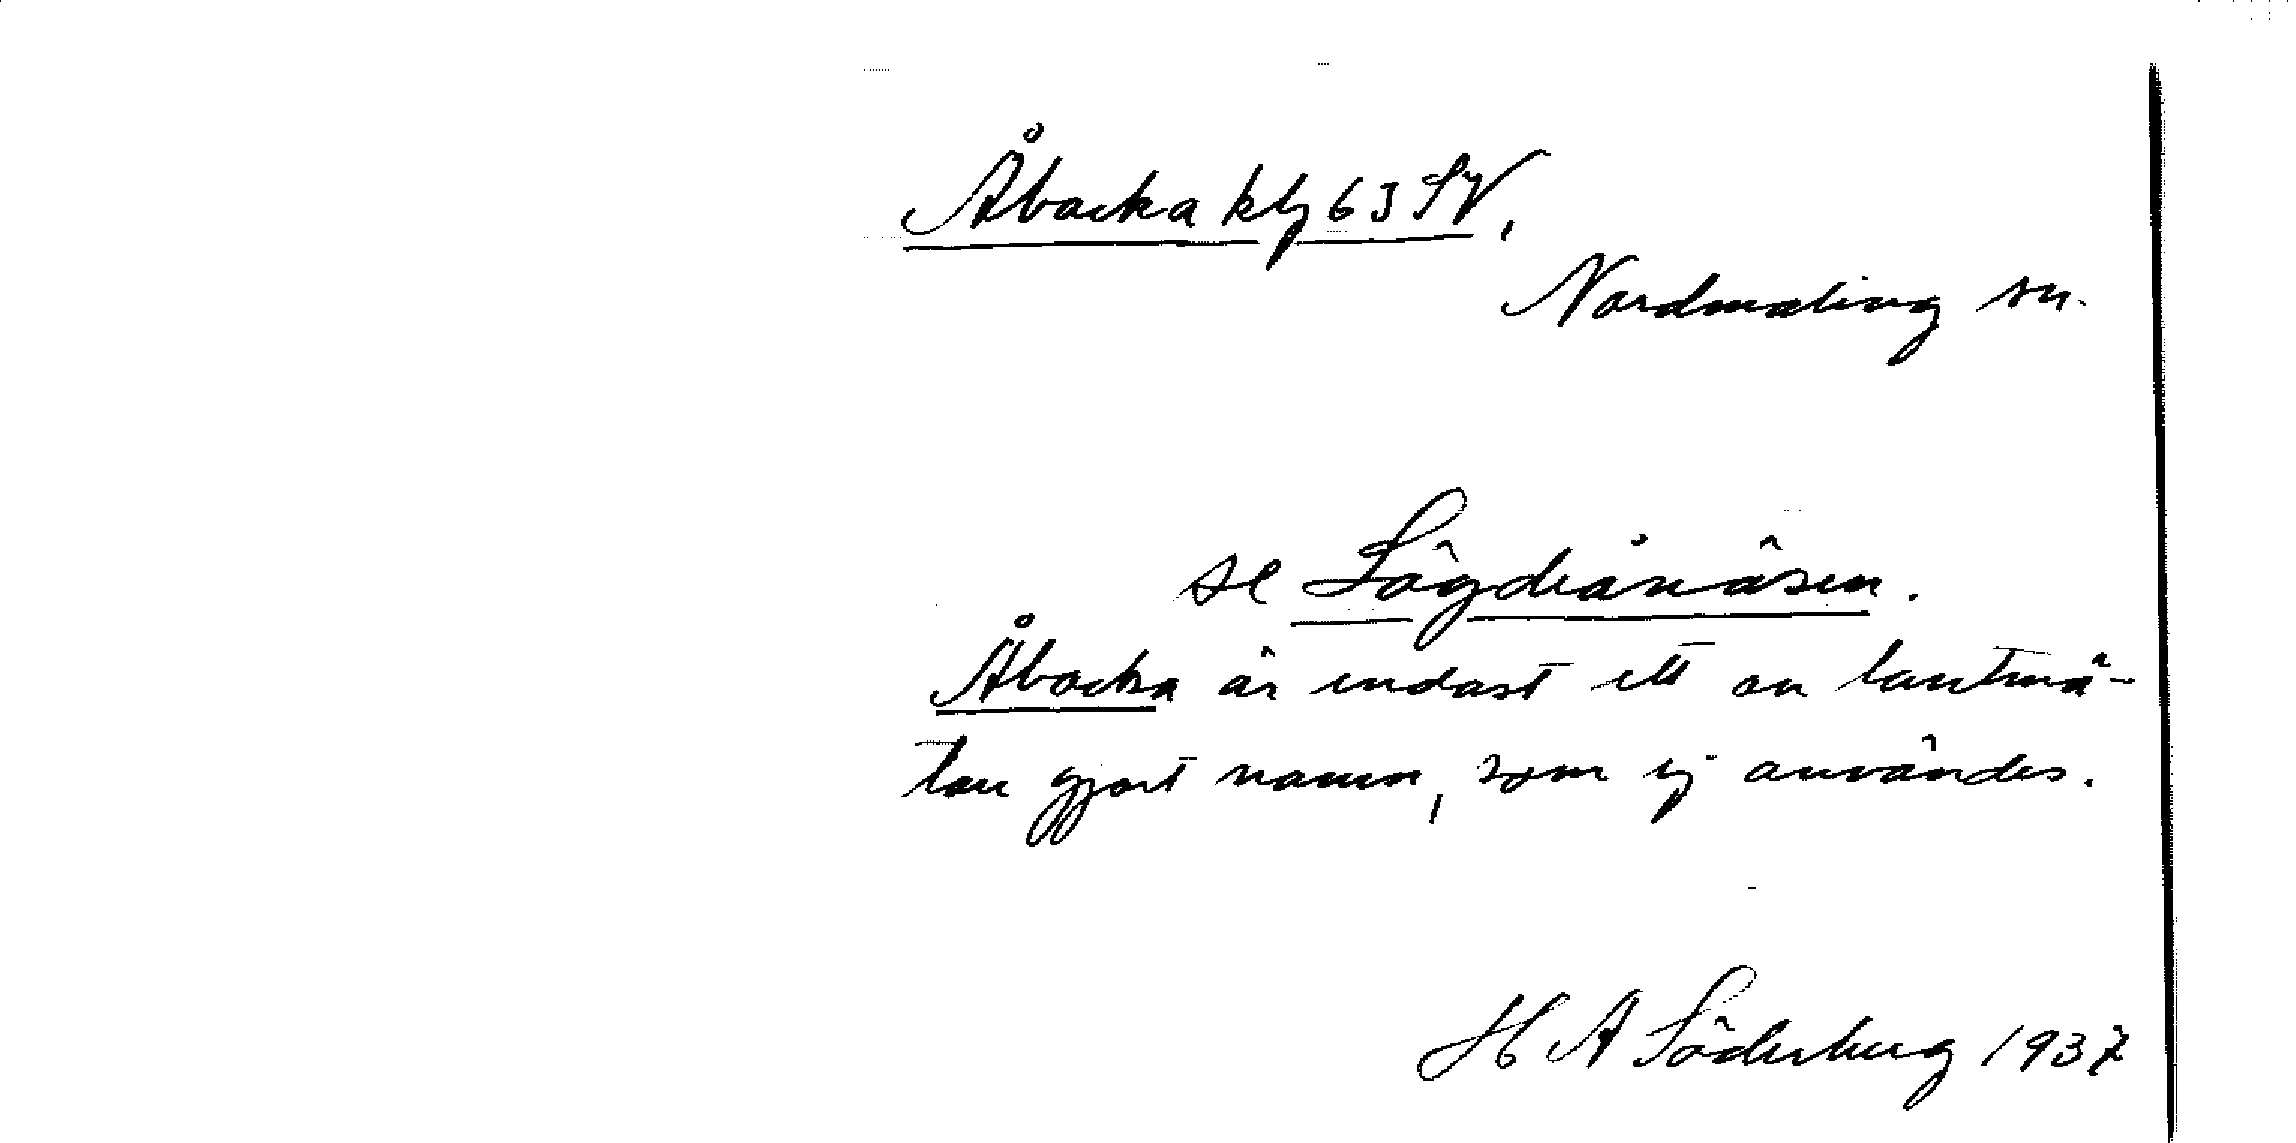 Åbacka kbj 63 SV,
Nordmaling sn.
se Lögdeånäsen.
Åbacka är endast ett av lantmä-
tare gjort namn, som ej användes.
H A Söderberg 1937